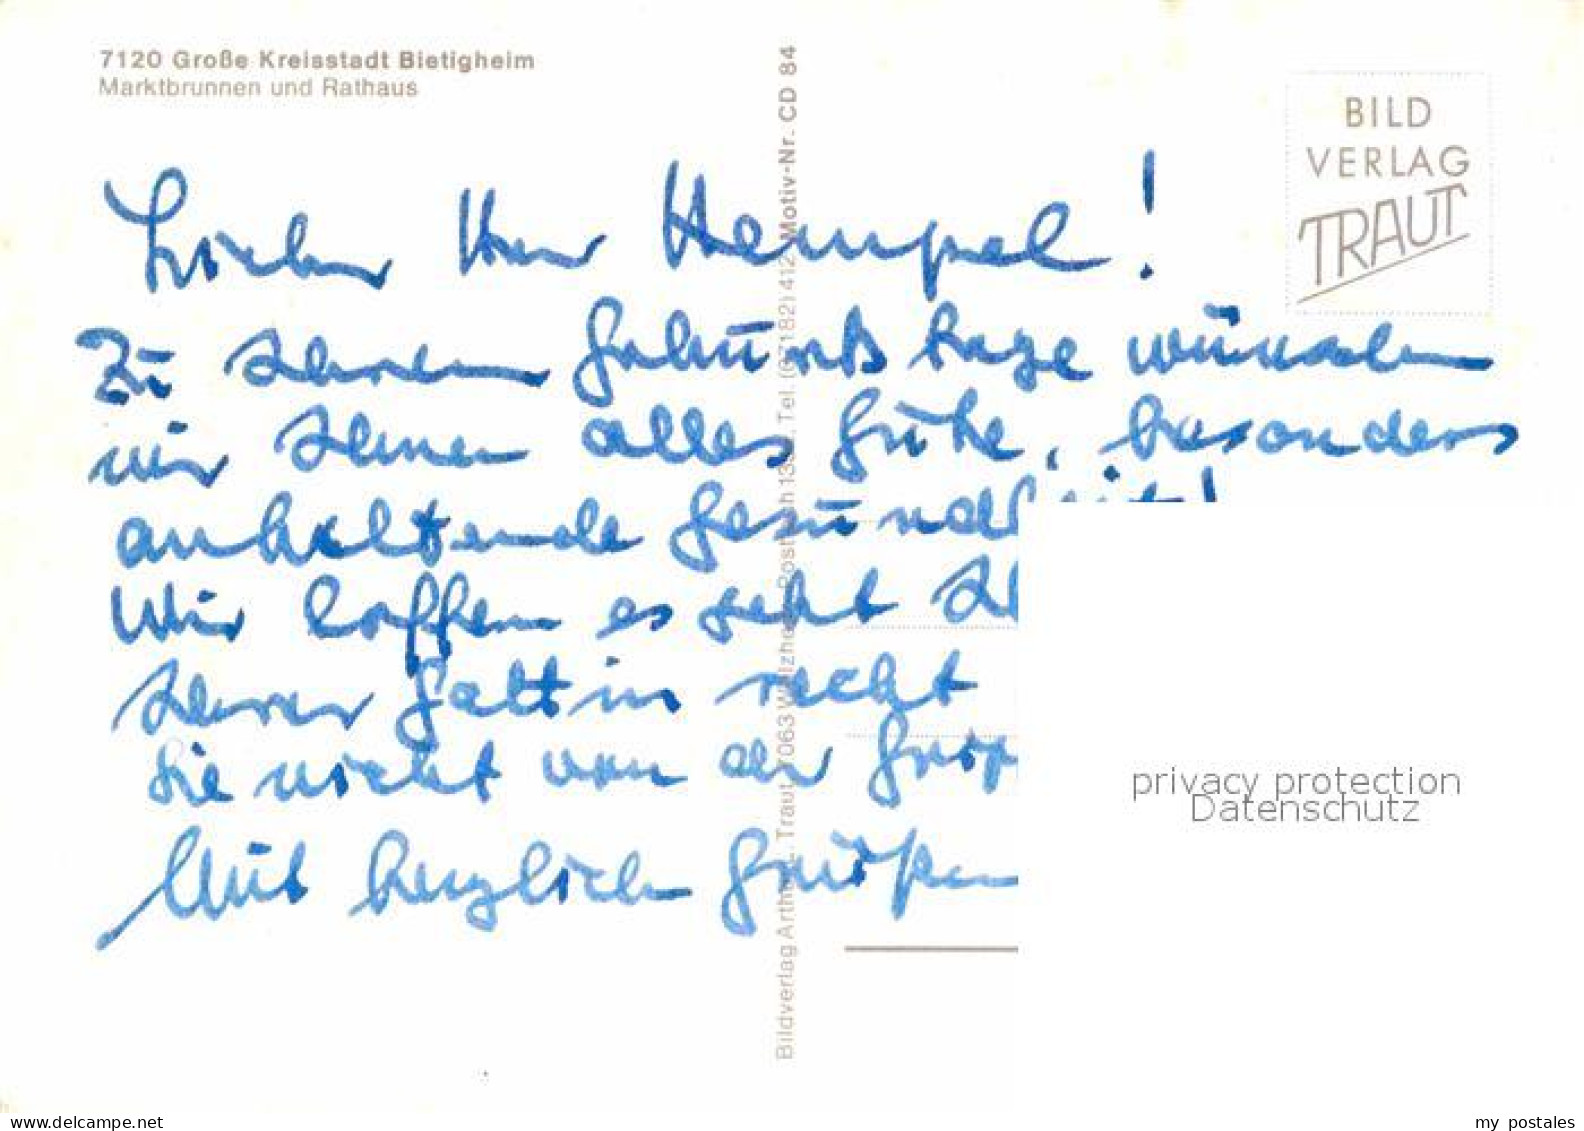 7120 Große Kreisstadt Bietigheim
Marktbrunnen und Rathaus
BILD
VERLAG
TRAUT
Lieber Herr Hempel!
Zu Ihrem Geburtstage wünschen
wir Ihnen alles Gute, besonders
anhaltende Gesundheit!
Wir hoffen es geht
Ihrer Gattin recht
Sie nicht von der
Mit herzlichen Grüßen
Bildverlag Arthur F. Traut, 7063 Welzheim, Postfach Tel. (07182) 412 Motiv-Nr. CD 84
privacy protection
Datenschutz
my postales